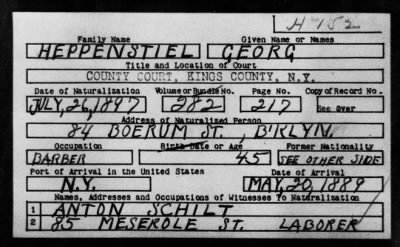 H 152
Family Name Given Name or Names
HEPPENSTIEL GEORG
Title and Location of Court
COUNTY COURT, KINGS COUNTY, N.Y.
Date of Naturalization Volume or Bundle No. Page No. Copy of Record No.
JULY, 26, 1897 282 217 See Over
Address of Naturalized Person
84 BOERUM ST., B'KLYN.
Occupation Birth Date or Age Former Nationality
BARBER 45 SEE OTHER SIDE
Port of Arrival in the United States Date of Arrival
N.Y. MAY, 20, 1889
Names, Addresses and Occupations of Witnesses To Naturalization
1 ANTON SCHILT
2 85 MESEROLE ST. LABORER